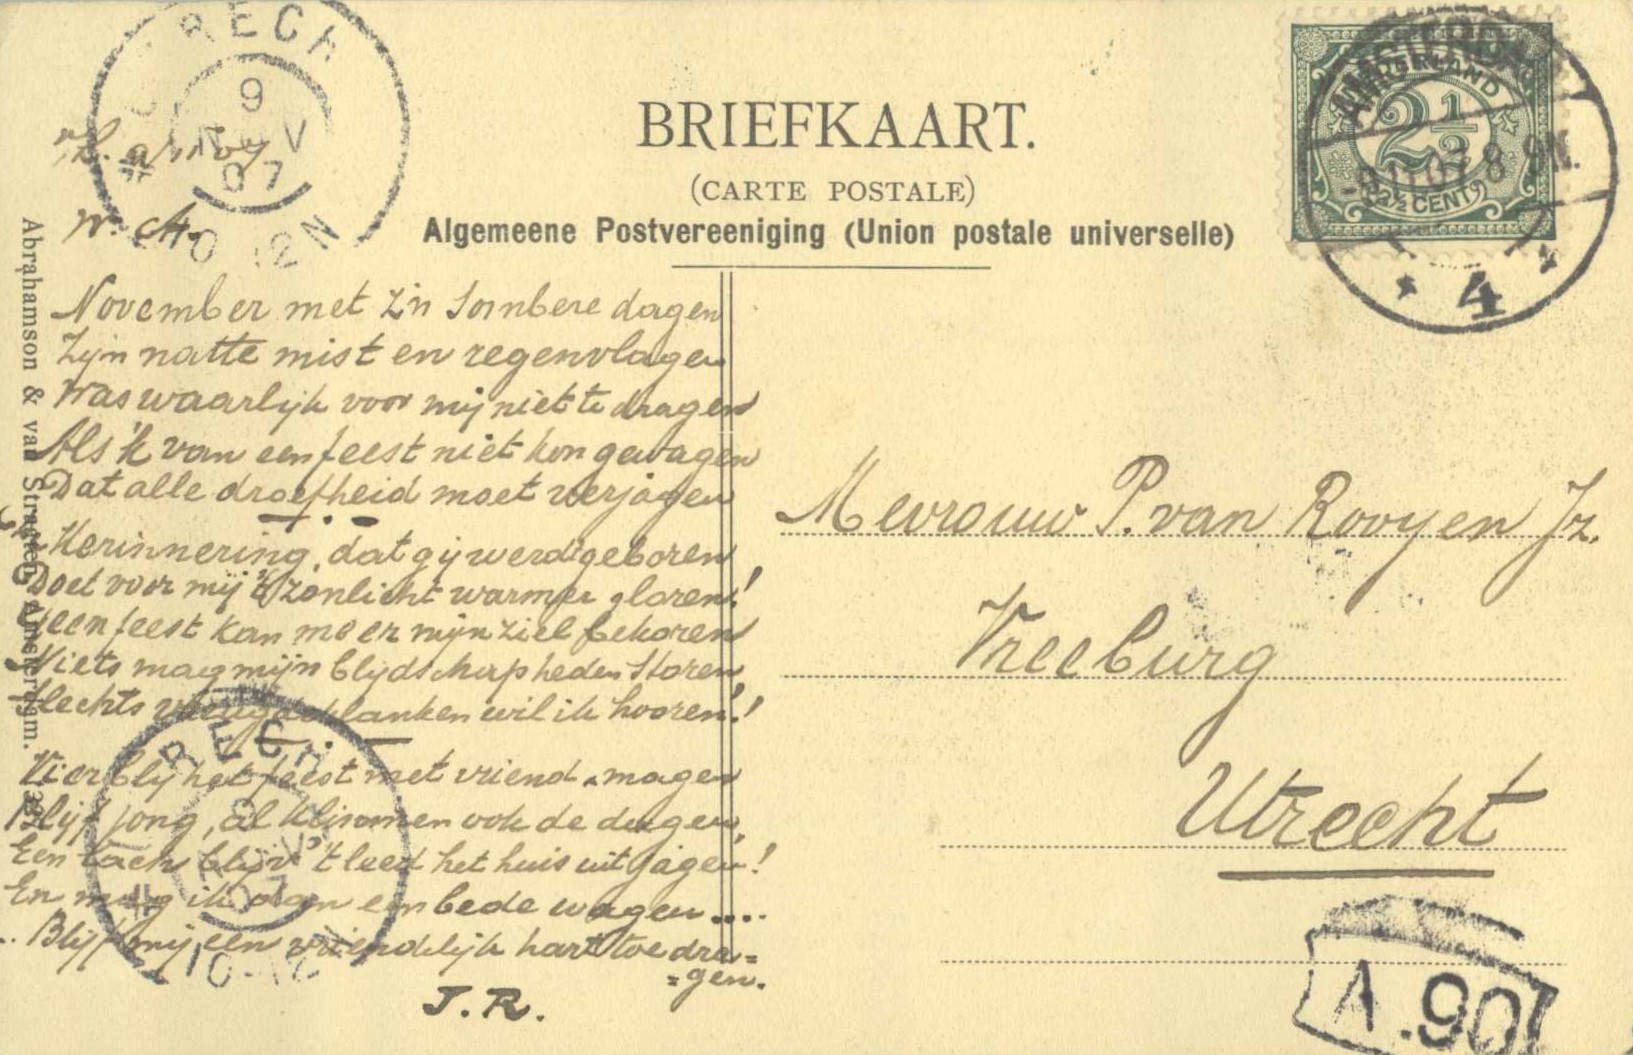 BRIEFKAART.
(CARTE POSTALE)
Algemeene Postvereeniging (Union postale universelle)
RECH
9
NOV
07
10-12N
W. A.
AMSTERDAM
NEDERLAND
2½
-8.11.07.8-9N.
2½ CENT
4
Abrahamson & van Straaten, Amsterdam.
November met z'n sombere dagen
Zijn natte mist en regenvlagen
Was waarlijk voor mij niet te dragen
Als 'k van een feest niet kon gewagen
Dat alle droefheid moet verjagen
Herinnering, dat gij werdt geboren
Doet voor mij 't zonlicht warmer gloren!
Geen feest kan meer mijn ziel bekoren
Niets mag mijn blijdschap heden storen
Slechts vreugdeklanken wil ik hooren!
Vier blij het feest met vriend magen
Blijf jong, al klimmen ook de dagen,
Een lach blijv' 't leed het huis uit jagen!
En mag ik dan een bede wagen....
.. Blijf mij een vriendelijk hart toe dra=
=gen.
J. R.
Mevrouw P. van Rooyen Jz.
Vreeburg
Utrecht
RECH
9
NOV
07
10-12
A.90